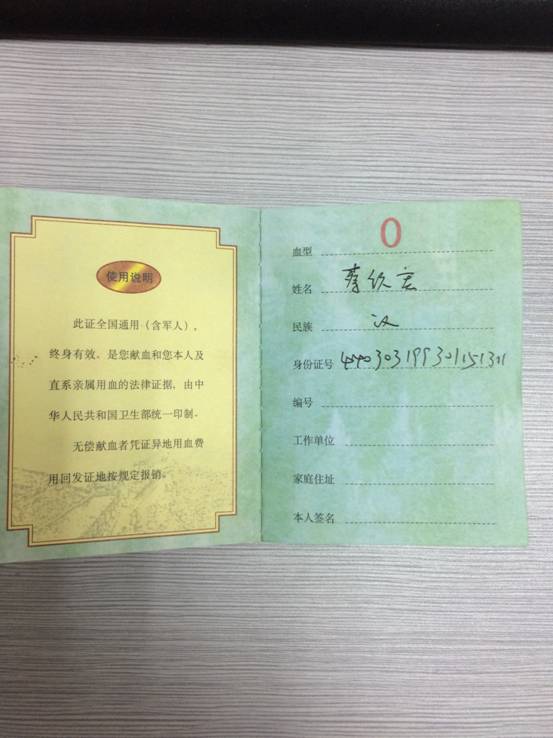 使用说明
此证全国通用（含军人），
终身有效，是您献血和您本人及
直系亲属用血的法律证据，由中
华人民共和国卫生部统一印制。
无偿献血者凭证异地用血费
用回发证地按规定报销。
血型 O
姓名 蔡
民族 汉
身份证号
编号
工作单位
家庭住址
本人签名